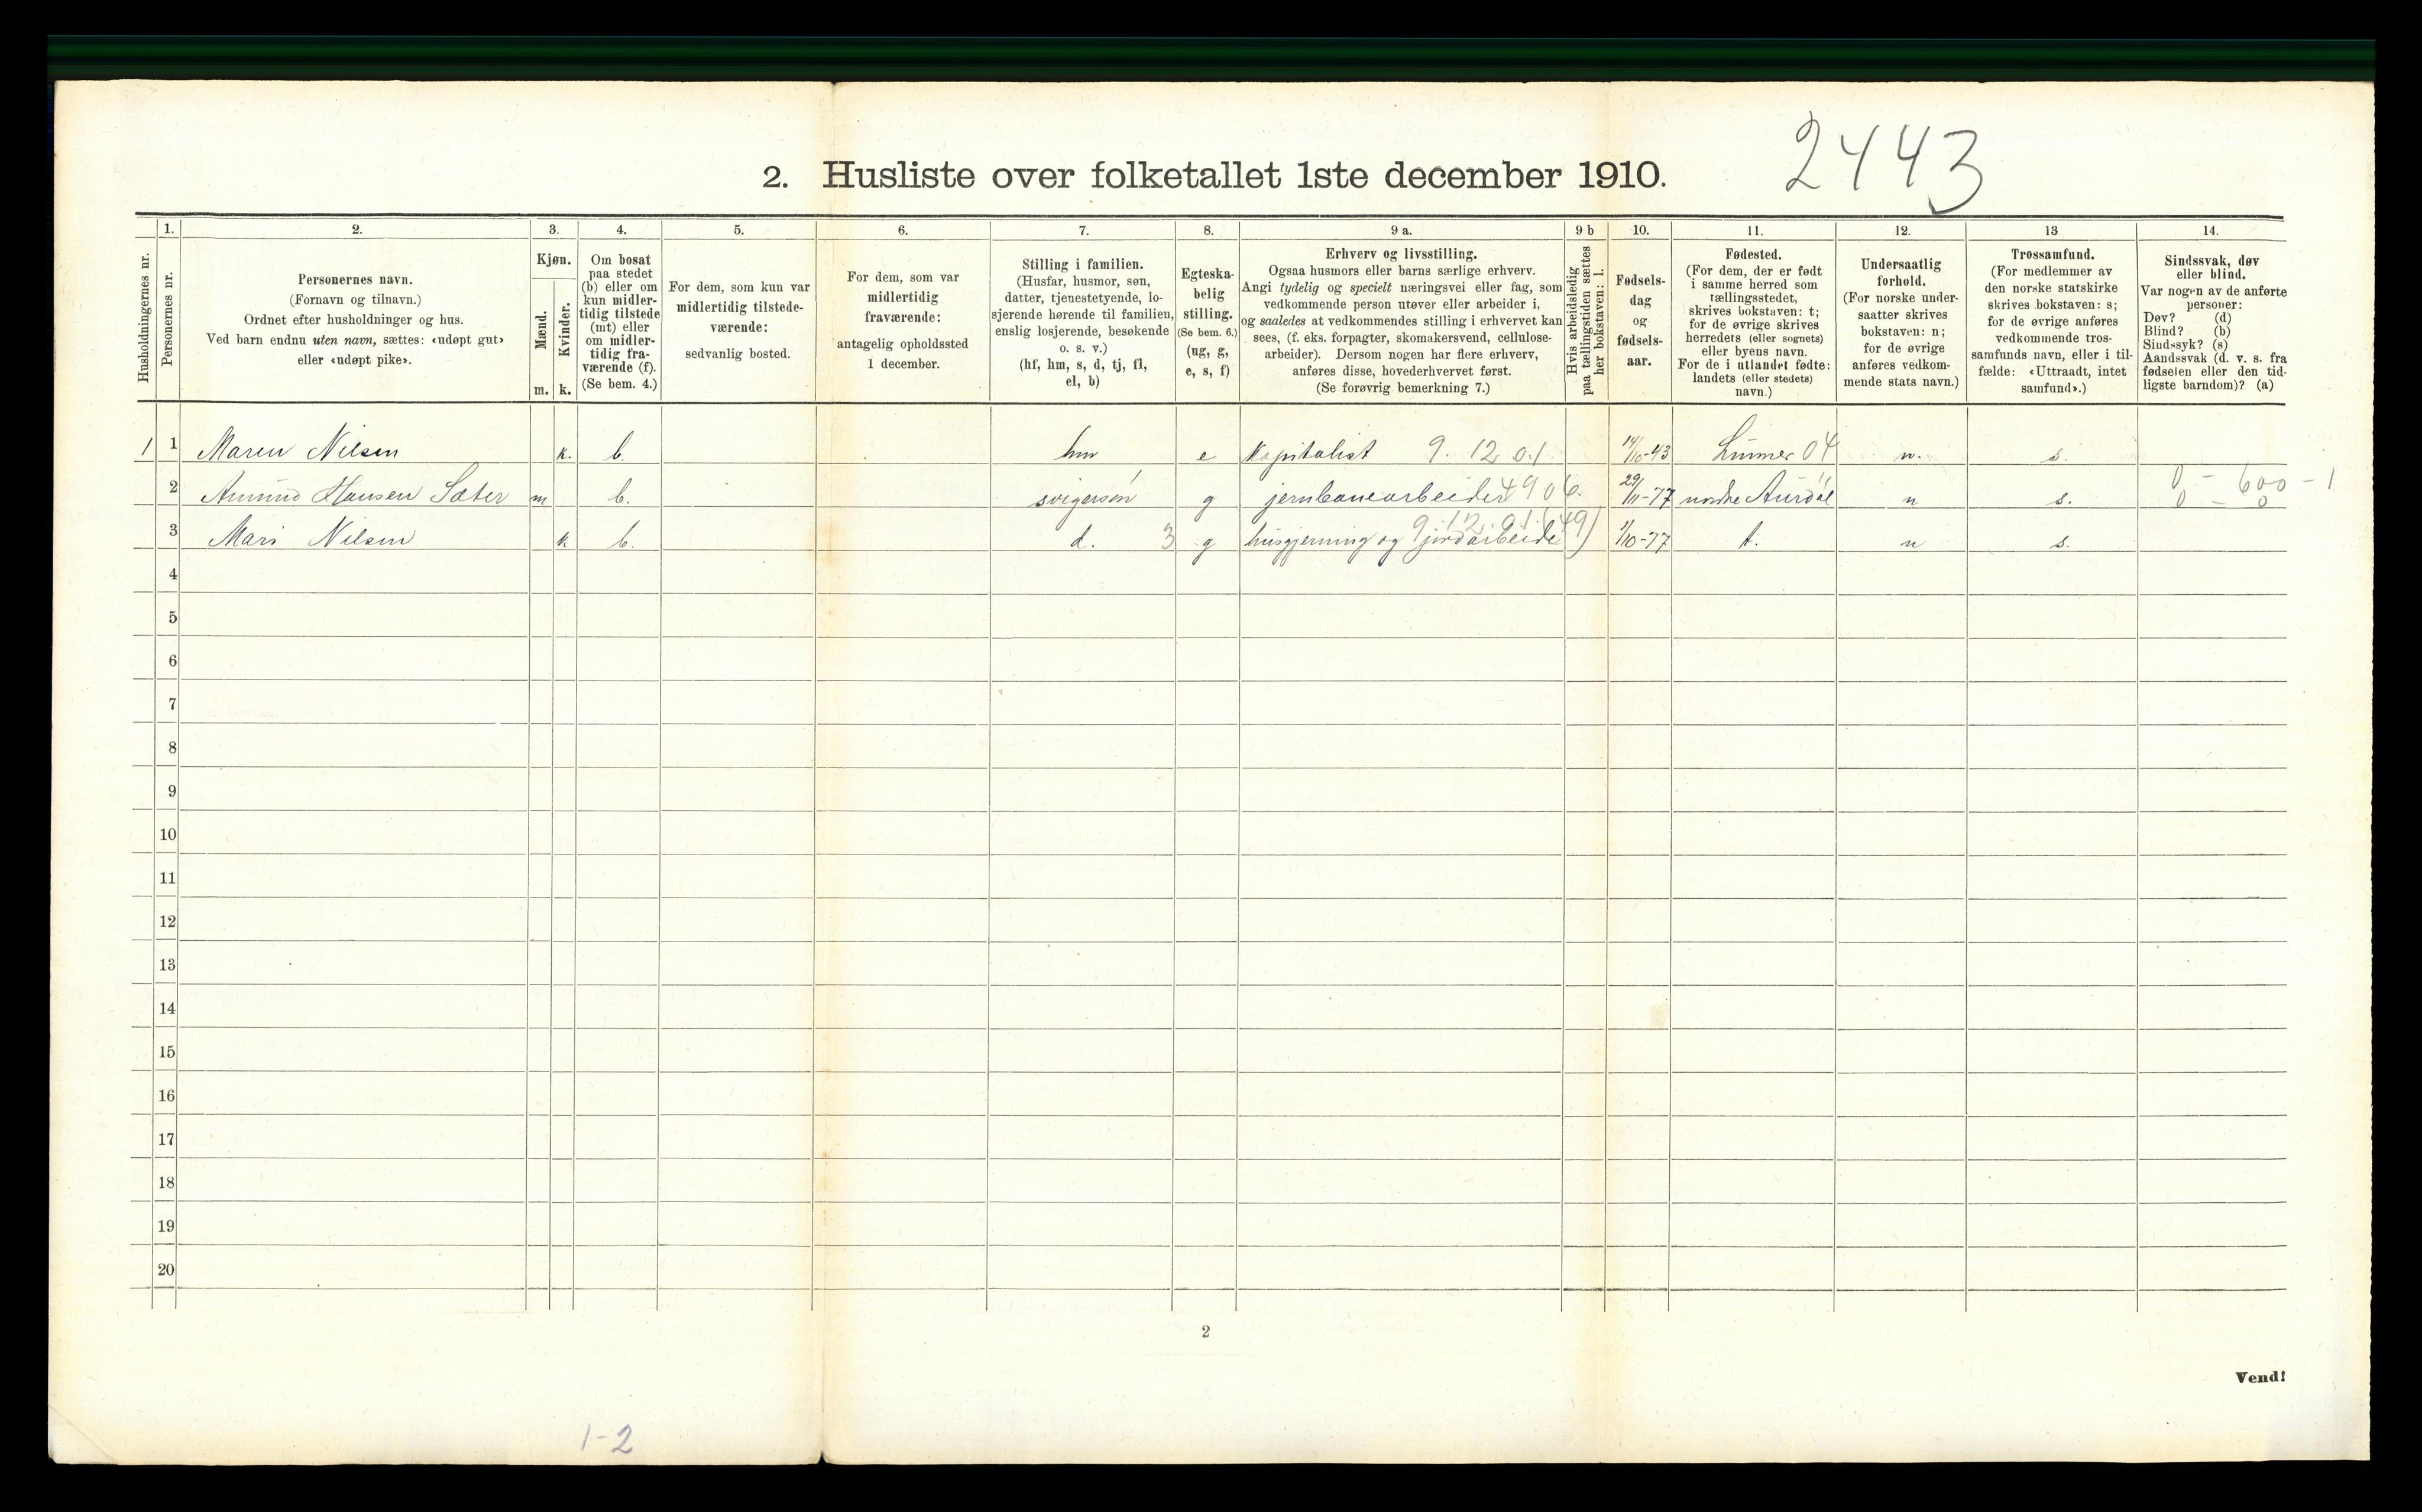 2443
2. Husliste over folketallet 1ste december 1910.
1. 2. 3. 4. 5. 6. 7. 8. 9 a. 9 b 10. 11. 12. 13 14.
Husholdningernes nr.
Personernes nr.
Personernes navn.
(Fornavn og tilnavn.)
Ordnet efter husholdninger og hus.
Ved barn endnu uten navn, sættes: «udøpt gut»
eller «udøpt pike».
Kjøn.
Mænd.
Kvinder.
m. k.
Om bosat
paa stedet
(b) eller om
kun midler-
tidig tilstede
(mt) eller
om midler-
tidig fra-
værende (f).
(Se bem. 4.)
For dem, som kun var
midlertidig tilstede-
værende:
sedvanlig bosted.
For dem, som var
midlertidig
fraværende:
antagelig opholdssted
1 december.
Stilling i familien.
(Husfar, husmor, søn,
datter, tjenestetyende, lo-
sjerende hørende til familien,
enslig losjerende, besøkende
o. s. v.)
(hf, hm, s, d, tj, fl,
el, b)
Egteska-
belig
stilling.
(Se bem. 6.)
(ug, g,
e, s, f)
Erhverv og livsstilling.
Ogsaa husmors eller barns særlige erhverv.
Angi tydelig og specielt næringsvei eller fag, som
vedkommende person utøver eller arbeider i,
og saaledes at vedkommendes stilling i erhvervet kan
sees, (f. eks. forpagter, skomakersvend, cellulose-
arbeider). Dersom nogen har flere erhverv,
anføres disse, hovederhvervet først.
(Se forøvrig bemerkning 7.)
Hvis arbeidsledig
paa tællingstiden sættes
her bokstaven: l.
Fødsels-
dag
og
fødsels-
aar.
Fødested.
(For dem, der er født
i samme herred som
tællingsstedet,
skrives bokstaven: t;
for de øvrige skrives
herredets (eller sognets)
eller byens navn.
For de i utlandet fødte:
landets (eller stedets)
navn.)
Undersaatlig
forhold.
(For norske under-
saatter skrives
bokstaven: n;
for de øvrige
anføres vedkom-
mende stats navn.)
Trossamfund.
(For medlemmer av
den norske statskirke
skrives bokstaven: s;
for de øvrige anføres
vedkommende tros-
samfunds navn, eller i til-
fælde: «Uttraadt, intet
samfund».)
Sindssvak, døv
eller blind.
Var nogen av de anførte
personer:
Døv? (d)
Blind? (b)
Sindssyk? (s)
Aandssvak (d. v. s. fra
fødselen eller den tid-
ligste barndom)? (a)
1 1 Maren Nilsen k. b. hm e kapitalist 9. 12 01 14/10-43 Lunner 04 n. s.
2 Amund Hansen Sæter m b. svigersøn g jernbanearbeider 4906. 29/11-77 nordre Aurdal n s. 0 - 600 - 1
0 - 0
3 Mari Nilsen k b. d. 3 g husgjerning og jordarbeide 9.12.01(49) 1/10-77 t. n s.
4
5
6
7
8
9
10
11
12
13
14
15
16
17
18
19
20
2
Vend!
1-2